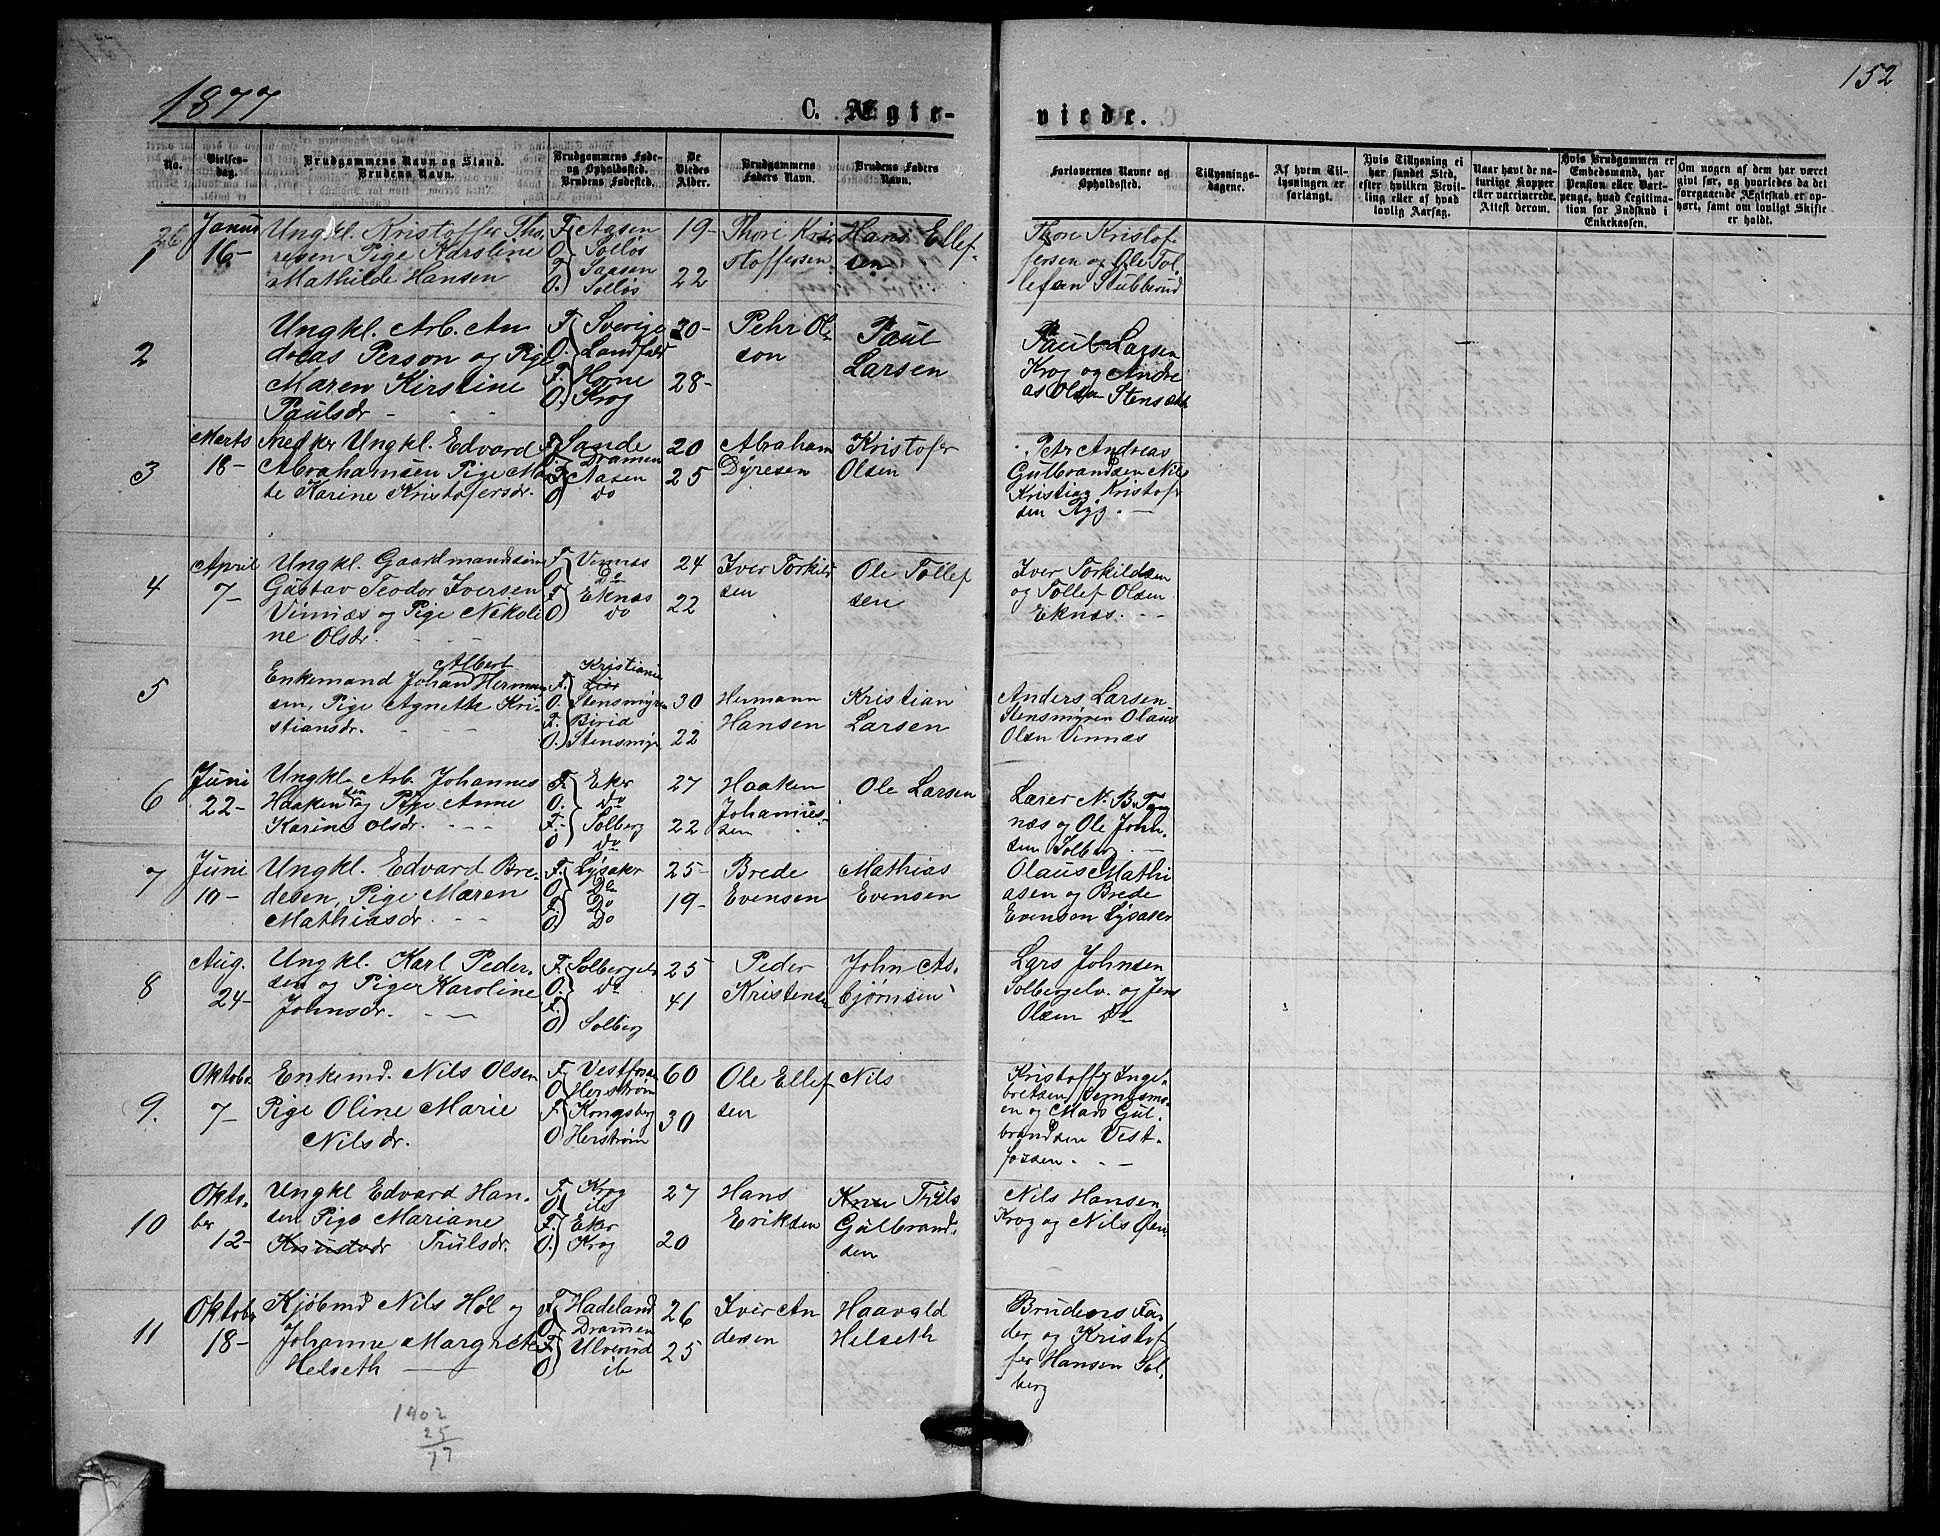 152
1877
C. Ægte-
viede.
No.
Vielses-
dag.
Brudgommens Navn og Stand.
Brudens Navn.
Brudgommens Føde-
og Opholdsted.
Brudens Fødested.
De
Viedes
Alder.
Brudgommens
Faders Navn.
Brudens Faders
Navn.
Forlovernes Navne og
Opholdsted.
Tillysnings-
dagene.
Af hvem Til-
lysningen er
forlangt.
Hvis Tillysning ei
har fundet Sted,
efter hvilken Bevil-
ling eller af hvad
lovlig Aarsag.
Naar havt de na-
turlige Kopper
eller vaccinerede.
Attest derom.
Hvis Brudgommen er
Embedsmand, har
Pension eller Vart-
penge, hvad Legitima-
tion for Indskud i
Enkekassen.
Om nogen af dem har været
givt før, og hvorledes da det
foregaaende Ægteskab er op-
hørt, samt om lovligt Skifte
er holdt.
26
1
Januar
16-
Ungkl. Kristoffer Tho-
resen Pige Karoline
Mathilde Hansen
F. Aasen
O. Solløs
F. Saasen
O. Solløs
19-
22
Thore Kris
stoffersen
Hans Ellef-
sen
Thore Kristof-
fersen og Ole Tol-
lefsen Stubberud
2
Ungkl. Arb. An
dreas Person og Pige
Maren Kirstine
Paulsdr -
F. Sverige
O. Landfald
F. Horne
O. Krog
30-
28-
Pehr Ol-
son
Paul
Larsen
Paul Larsen
Krog og Andre
as Olsen Stensæth
3
Marts
18-
Snedker Ungkl. Edvard
Abrahamsen Pige Ma
te Karine Kristofersdr.
F. Sande
O. Dramen
F. Aasen
O. do
20
25
Abraham
Dyresen
Kristofer
Olsen
Petr Andreas
Gulbrandsen Nils
Kristian Kristof
sen Ryg. -
4
April
7-
Ungkl. Gaardmandssøn
Gustav Teodor Iversen
Vinnæs og Pige Nikoli
ne Olsdr.
F. Vinnæs
O. Do
F. Eknæs
O do
24
22
Iver Torkild
sen
Ole Tollef
sen
Iver Torkildsen
og Tollef Olsen
Eknæs. -
5
Albert
Enkemand Johan Herman
sen, Pige Agnethe Kri-
stiansdr. - -
Kristiania
F. Lier
O. Stensmyren
F. Birid
O. Stensmyr
30
22
Hermann
Hansen
Kristian
Larsen
Anders Larsen
Stensmyren Olaus
Olsen Vinnæs
6
Juni
22-
Ungkl. Arb. Johannes
Haakensen og Pige Anne
Karine Olsdr. - - -
F. Eker
O. do
F. Solberg
O do
27
22
Haaken
Johannes-
sen
Ole Larsen
Lærer N. B. Tang
næs og Ole John-
sen Solberg -
7
Juni
10-
Ungkl. Edvard Bre-
desen, Pige Maren
Mathiasdr. - -
F. Lysaker
O Do
F. Do
O Do
25-
19-
Brede
Evensen
Mathias
Evensen
Olaus Mathi
asen og Brede
Evenson Lysaker
8
Aug.
24-
Ungkl. Karl Peder-
sen og Pige Karoline
Johnsdr. - -
F. Solbergelv
O. do
F.
O Solberg
25
41
Peder
Kristensen
John As-
bjørnsen
Lars Johnsen
Solbergelv. og Jens
Olsen Do
9.
Oktober
7-
Enkemd. Nils Olsen
Pige Oline Marie
Nilsdr.
F. Vestfossen
O Herstrøm
F. Kongsberg
O Herstrøm
60
30
Ole Ellef
sen
Nils
Kristoffer Inge-
bretsen
en og Mads Gul-
brandsen Vest-
fossen. - -
10
Okto-
ber
12-
Ungkl Edvard Han-
sen Pige Mariane
Knustdr Trulsdr.
F. Krog
O ib
F. Eker
O. Krog
27
20
Hans
Eriksen
Knu Truls
Gulbrand-
sen
Nils Hansen
Krog og Nils Øen
11
Oktober
18-
Kjøbmd Nils Høl og
Johanne Margrete
Helseth
F. Hadeland
O. Dramen
F. Ulverud
O ib
26
25
Iver An
dersen
Haavald
Helseth
Brudens Fa-
der og Kristof
fer Hansen Sol-
berg
1902
25
77